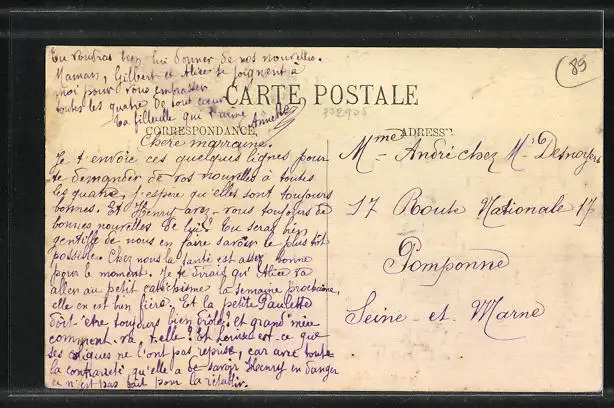 Tu voudras bien lui donner de nos nouvelles.
Maman, Gilbert et Alice se joignent à
moi pour vous embrasser
toutes les quatre de tout cœur
Ta filleule qui t'aime
Annette
89
CARTE POSTALE
CORRESPONDANCE
ADRESSE
Chère marraine.
Je t'envoie ces quelques lignes pour
te demander de vos nouvelles à toutes
les quatre, j'espère qu'elles sont toujours
bonnes. Et Henry avez-vous toujours de
bonnes nouvelles de lui? Tu seras bien
gentille de nous en faire savoir le plus tôt
possible. Chez nous la santé est assez bonne
pour le moment. Je te dirais qu'Alice va
aller au petit catéchisme la semaine prochaine,
elle en est bien fière. Et la petite Paulette
doit être toujours bien drôle? et grand'mère
comment va-t-elle? Et Louise est-ce que
ses coliques ne l'ont pas reprise, car avec toute
la contrariété qu'elle a de savoir Henry en danger
ce n'est pas fait pour la rétablir.
Mme André chez Mr Desnoyers
17 Route Nationale 17
Pomponne
Seine-et-Marne